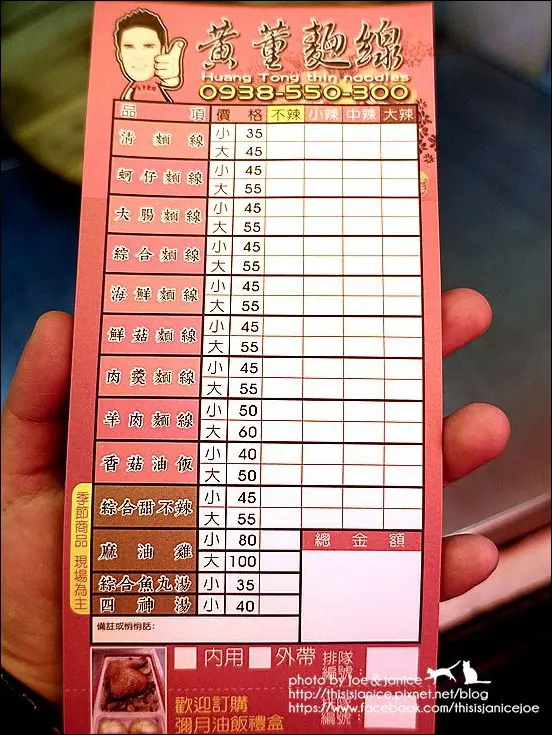 黃董麵線
Huang Tong thin noodles
0938-550-300
品項 價格 不辣 小辣 中辣 大辣
清麵線 小 35
大 45
蚵仔麵線 小 45
大 55
大腸麵線 小 45
大 55
綜合麵線 小 45
大 55
海鮮麵線 小 45
大 55
鮮菇麵線 小 45
大 55
肉羹麵線 小 45
大 55
羊肉麵線 小 50
大 60
香菇油飯 小 40
大 50
季節商品 現場為主
綜合甜不辣 小 45
大 55
麻油雞 小 80
大 100
綜合魚丸湯 小 35
四神湯 小 40
總金額
備註或悄悄話:
內用 外帶 排隊編號:
歡迎訂購
彌月油飯禮盒
排隊編號:
photo by Joe & Janice
http://thisisjanice.pixnet.net/blog
https://www.facebook.com/thisisjanicejoe